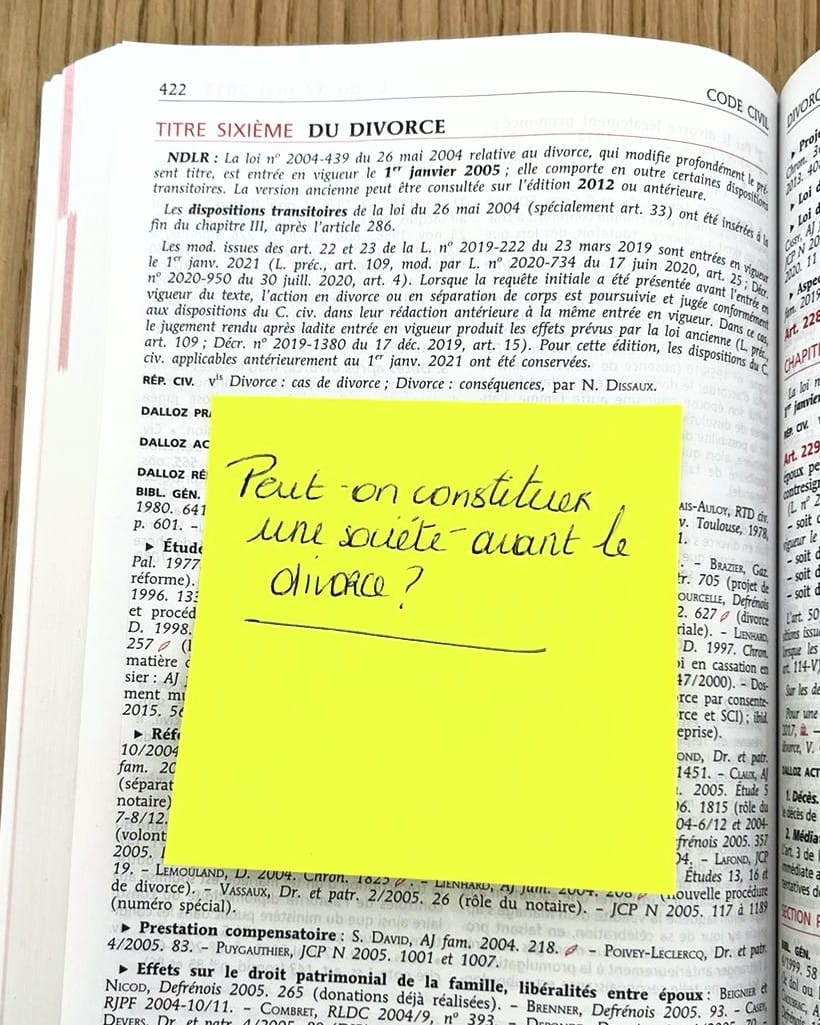 422
CODE CIVIL
TITRE SIXIÈME DU DIVORCE
NDLR : La loi nº 2004-439 du 26 mai 2004 relative au divorce, qui modifie profondément le pré-
sent titre, est entrée en vigueur le 1er janvier 2005 ; elle comporte en outre certaines dispositions
transitoires. La version ancienne peut être consultée sur l'édition 2012 ou antérieure.
Les dispositions transitoires de la loi du 26 mai 2004 (spécialement art. 33) ont été insérées à la
fin du chapitre III, après l'article 286.
Les mod. issues des art. 22 et 23 de la L. nº 2019-222 du 23 mars 2019 sont entrées en vigueur
le 1er janv. 2021 (L. préc., art. 109, mod. par L. nº 2020-734 du 17 juin 2020, art. 25 ; Décr.
nº 2020-950 du 30 juill. 2020, art. 4). Lorsque la requête initiale a été présentée avant l'entrée en
vigueur du texte, l'action en divorce ou en séparation de corps est poursuivie et jugée conformément
aux dispositions du C. civ. dans leur rédaction antérieure à la même entrée en vigueur. Dans ce cas,
le jugement rendu après ladite entrée en vigueur produit les effets prévus par la loi ancienne (L. préc.,
art. 109 ; Décr. nº 2019-1380 du 17 déc. 2019, art. 15). Pour cette édition, les dispositions du C.
civ. applicables antérieurement au 1er janv. 2021 ont été conservées.
RÉP. CIV. vis Divorce : cas de divorce ; Divorce : conséquences, par N. DISSAUX.
DALLOZ
DALLOZ
DALLOZ
BIBL. GÉN.
AIS-AULOY, RTD civ.
1980. 641
v. Toulouse, 1978,
p. 601. –
Peut-on constituer
une société avant le
divorce ?
► Étude
– BRAZIER, Gaz.
Pal. 1977
705 (projet de
réforme).
OURCELLE, Defrénois
1996.
627 (divorce
et procéd
riale). – LIENHARD,
D. 1998.
D. 1997. Chron.
257
en cassation en
matière
47/2000). – Dos-
sier : AJ
rce par consente-
ment mu
rce et SCI) ; ibid.
2015.
eprise).
► Réfé
OND, Dr. et patr.
10/2004
1451. – CLAUX, AJ
fam.
2005. Étude 5
(séparat
1815 (rôle du
notaire)
04-6/12 et 2004-
7-8/12.
efrénois 2005. 357
(volont
04. – LAFOND, JCP
2005.
Études 13, 16 et
19. – LEMOULAND, D. 2004. Chron. 1825 . – LIENHARD, AJ fam. 2004. (nouvelle procédure
de divorce). – VASSAUX, Dr. et patr. 2/2005. 26 (rôle du notaire). – JCP N 2005. 117 à 1189
(numéro spécial).
► Prestation compensatoire : S. DAVID, AJ fam. 2004. 218. – POIVEY-LECLERCQ, Dr. et patr.
4/2005. 83. – PUYGAUTHIER, JCP N 2005. 1001 et 1007.
► Effets sur le droit patrimonial de la famille, libéralités entre époux : BEIGNIER et
NICOD, Defrénois 2005. 265 (donations déjà réalisées). – BRENNER, Defrénois 2005. 93. – CASEY,
RJPF 2004-10/11. – COMBRET, RLDC 2004/9, nº 393.
DIVORC
► Proje
► Loi d
► Loi d
► Aspe
Art. 228
CHAPIT
La loi n
1er janvier
RÉP. CIV.
Art. 229
époux pe
contresign
– soit
vigueur le
– soit d
– soit d
– soit d
L'art. 50
sitions issu
lorsque les
art. 114-V)
Sur les de
Pour une
DALLOZ ACT
1. Décès.
le décès de
2. Média
L'art. 3 de l
immédiate a
tentatives d
SECTION